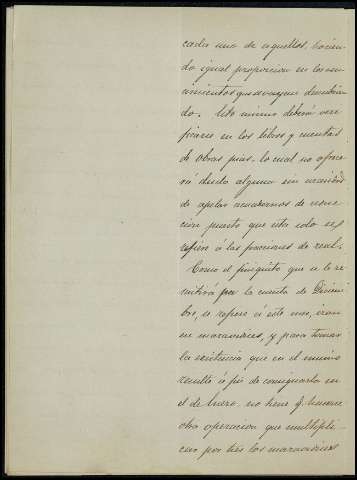 cada uno de aquellos, hacien-
do igual proporcion en los ven-
cimientos que se vayan deducien-
do. Esto mismo deberá veri-
ficarse en los libros y cuentas
de obras pias, lo cual no ofrece-
rá duda alguna sin necesidad
de apelar a cuadernos de
cion puesto que esta solo se
refiere á las fracciones de real.
Como el finiquito que se le re-
mitirá por la cuenta de Diciem-
bre, se refiere á este mes,
en maravedises, y para tomar
la existencia que en el mismo
resulte á fin de consignarla en
el de Enero, no tiene q. hacerse
otra operacion que multipli-
car por tres los maravedises